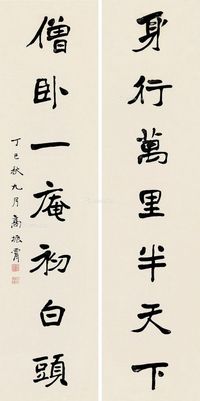 身行萬里半天下
僧卧一庵初白頭
丁巳秋九月 高振霄